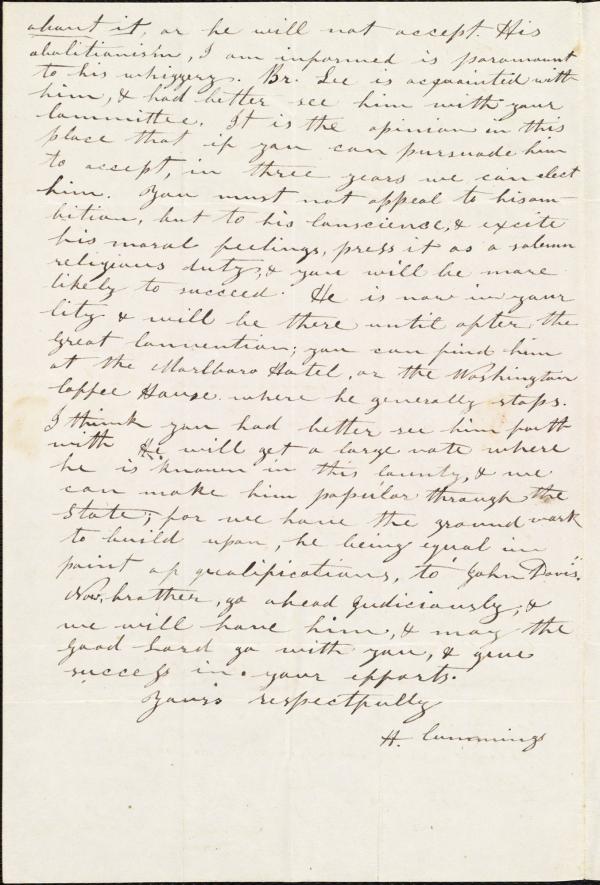 about it, or he will not accept. His
abolitionism, I am informed is paramount
to his whiggery. Br. Lee is acquainted with
him, & had better see him with your
Committee. It is the opinion in this
place that if you can pursuade him
to accept, in three years we can elect
him. You must not appeal to his am-
bition, but to his Conscience, & excite
his moral feelings, press it as a solemn
religious duty, & you will be more
likely to succeed. He is now in your
City & will be there until after the
great Convention; you can find him
at the Marlboro Hotel, or the Washington
Coffee House where he generally stops.
I think you had better see him forth
with He will get a large vote where
he is known in this County, & we
can make him popular through the
State; for we have the ground work
to build upon, he being equal in
point of qualifications, to "John Davis."
Now, brother, go ahead judiciously, &
we will have him, & may the
good Lord go with you, & give
success in your efforts.
Yours respectfully
H. Cummings